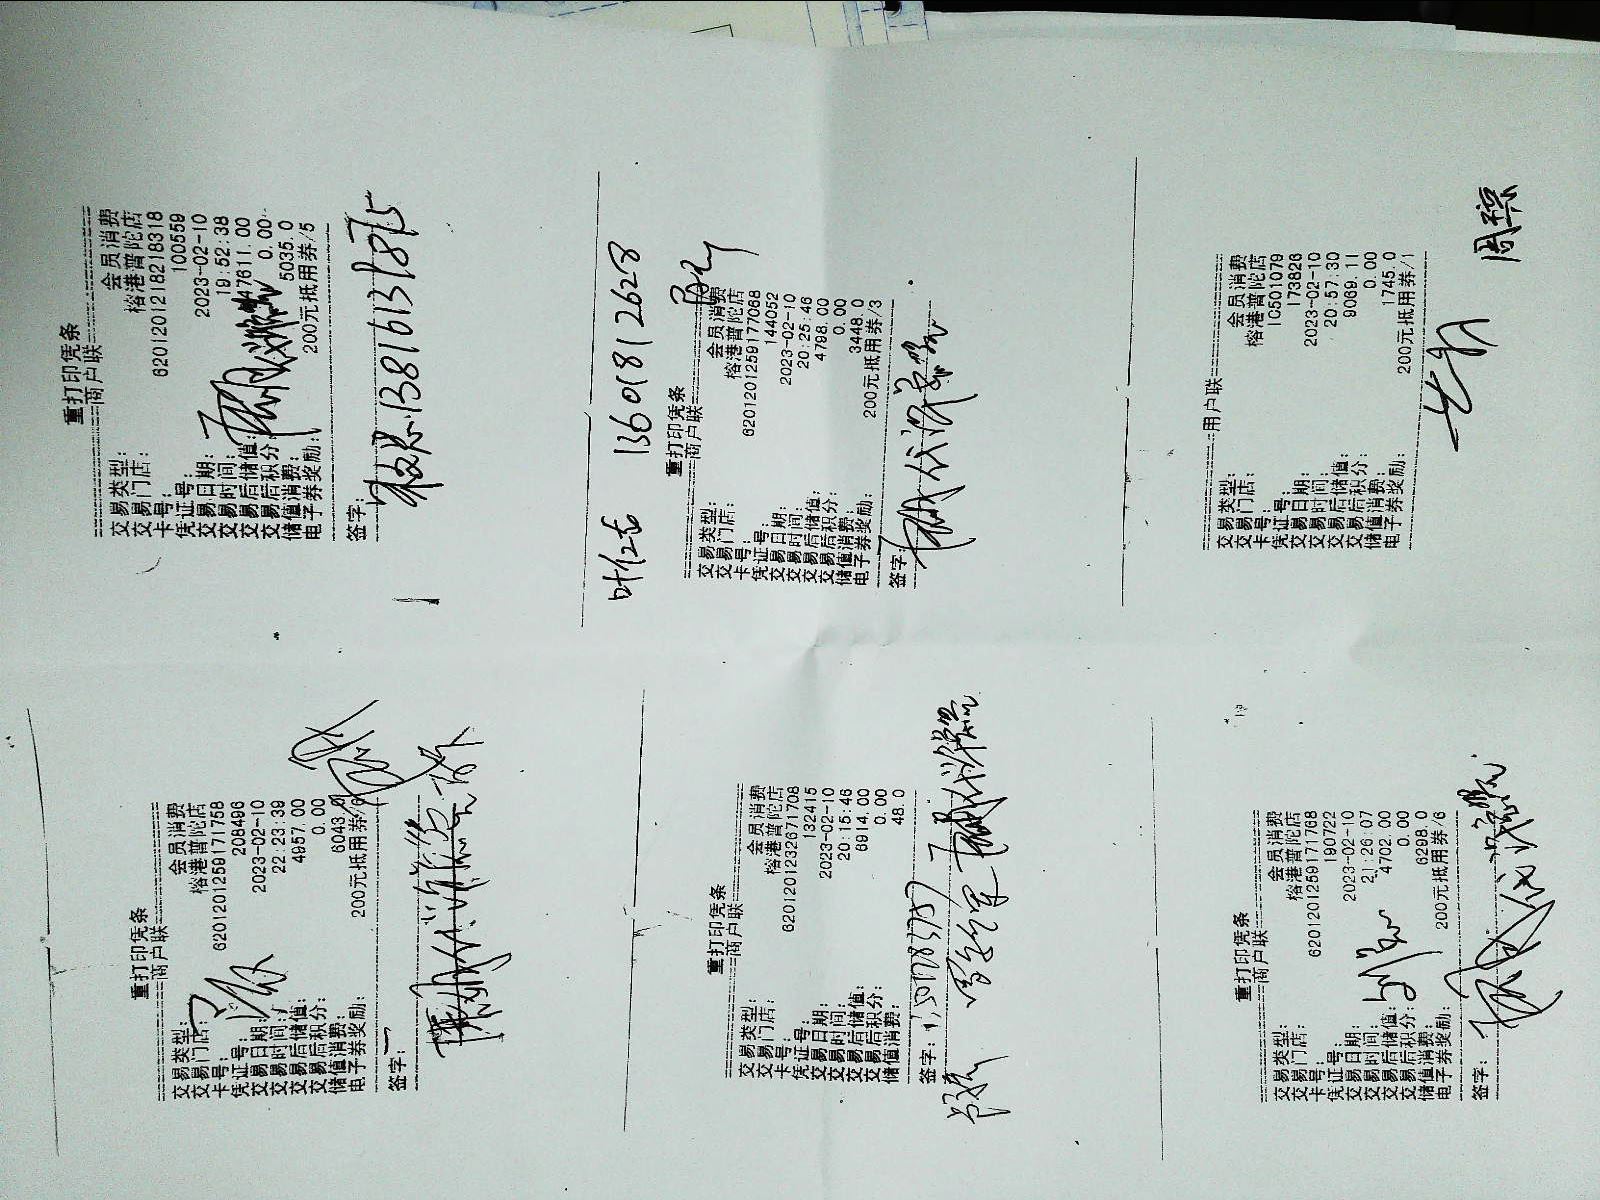 重打印凭条
商户联
交易类型: 会员消费
交易门店: 榕港普陀店
卡号: 6201201259171758
凭证号: 208496
交易日期: 2023-02-10
交易时间: 22:23:39
交易后储值: 4957.00
交易后积分: 0.00
储值消费: 6043.0
电子券奖励: 200元抵用券/6
签字:
重打印凭条
商户联
交易类型: 会员消费
交易门店: 榕港普陀店
卡号: 6201201218218318
凭证号: 100559
交易日期: 2023-02-10
交易时间: 19:52:38
交易后储值: 47611.00
交易后积分: 0.00
储值消费: 5035.0
电子券奖励: 200元抵用券/5
签字:
重打印凭条
商户联
交易类型: 会员消费
交易门店: 榕港普陀店
卡号: 6201201232671708
凭证号: 132415
交易日期: 2023-02-10
交易时间: 20:15:46
交易后储值: 6914.00
交易后积分: 0.00
储值消费: 48.0
签字:
13601812628
重打印凭条
商户联
交易类型: 会员消费
交易门店: 榕港普陀店
卡号: 6201201259177068
凭证号: 144052
交易日期: 2023-02-10
交易时间: 20:25:46
交易后储值: 4798.00
交易后积分: 0.00
储值消费: 3448.0
电子券奖励: 200元抵用券/3
签字:
重打印凭条
商户联
交易类型: 会员消费
交易门店: 榕港普陀店
卡号: 6201201259171768
凭证号: 190722
交易日期: 2023-02-10
交易时间: 21:26:07
交易后储值: 4702.00
交易后积分: 0.00
储值消费: 6298.0
电子券奖励: 200元抵用券/6
签字:
用户联
交易类型: 会员消费
交易门店: 榕港普陀店
卡号: IC501079
凭证号: 173826
交易日期: 2023-02-10
交易时间: 20:57:30
交易后储值: 9069.11
交易后积分: 0.00
储值消费: 1745.0
电子券奖励: 200元抵用券/1
周琼